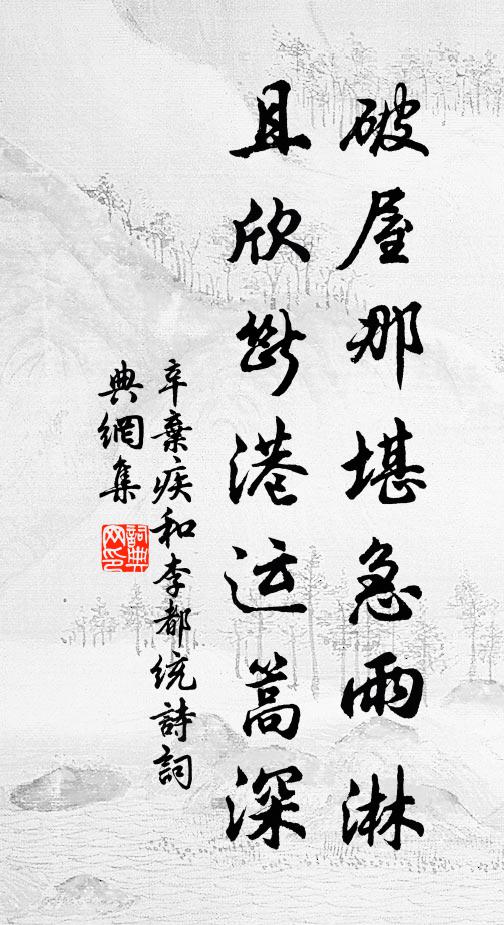 破屋那堪急雨淋
且欣断港运篙深
辛棄疾和李都统詩詞
典網集
詞典網印